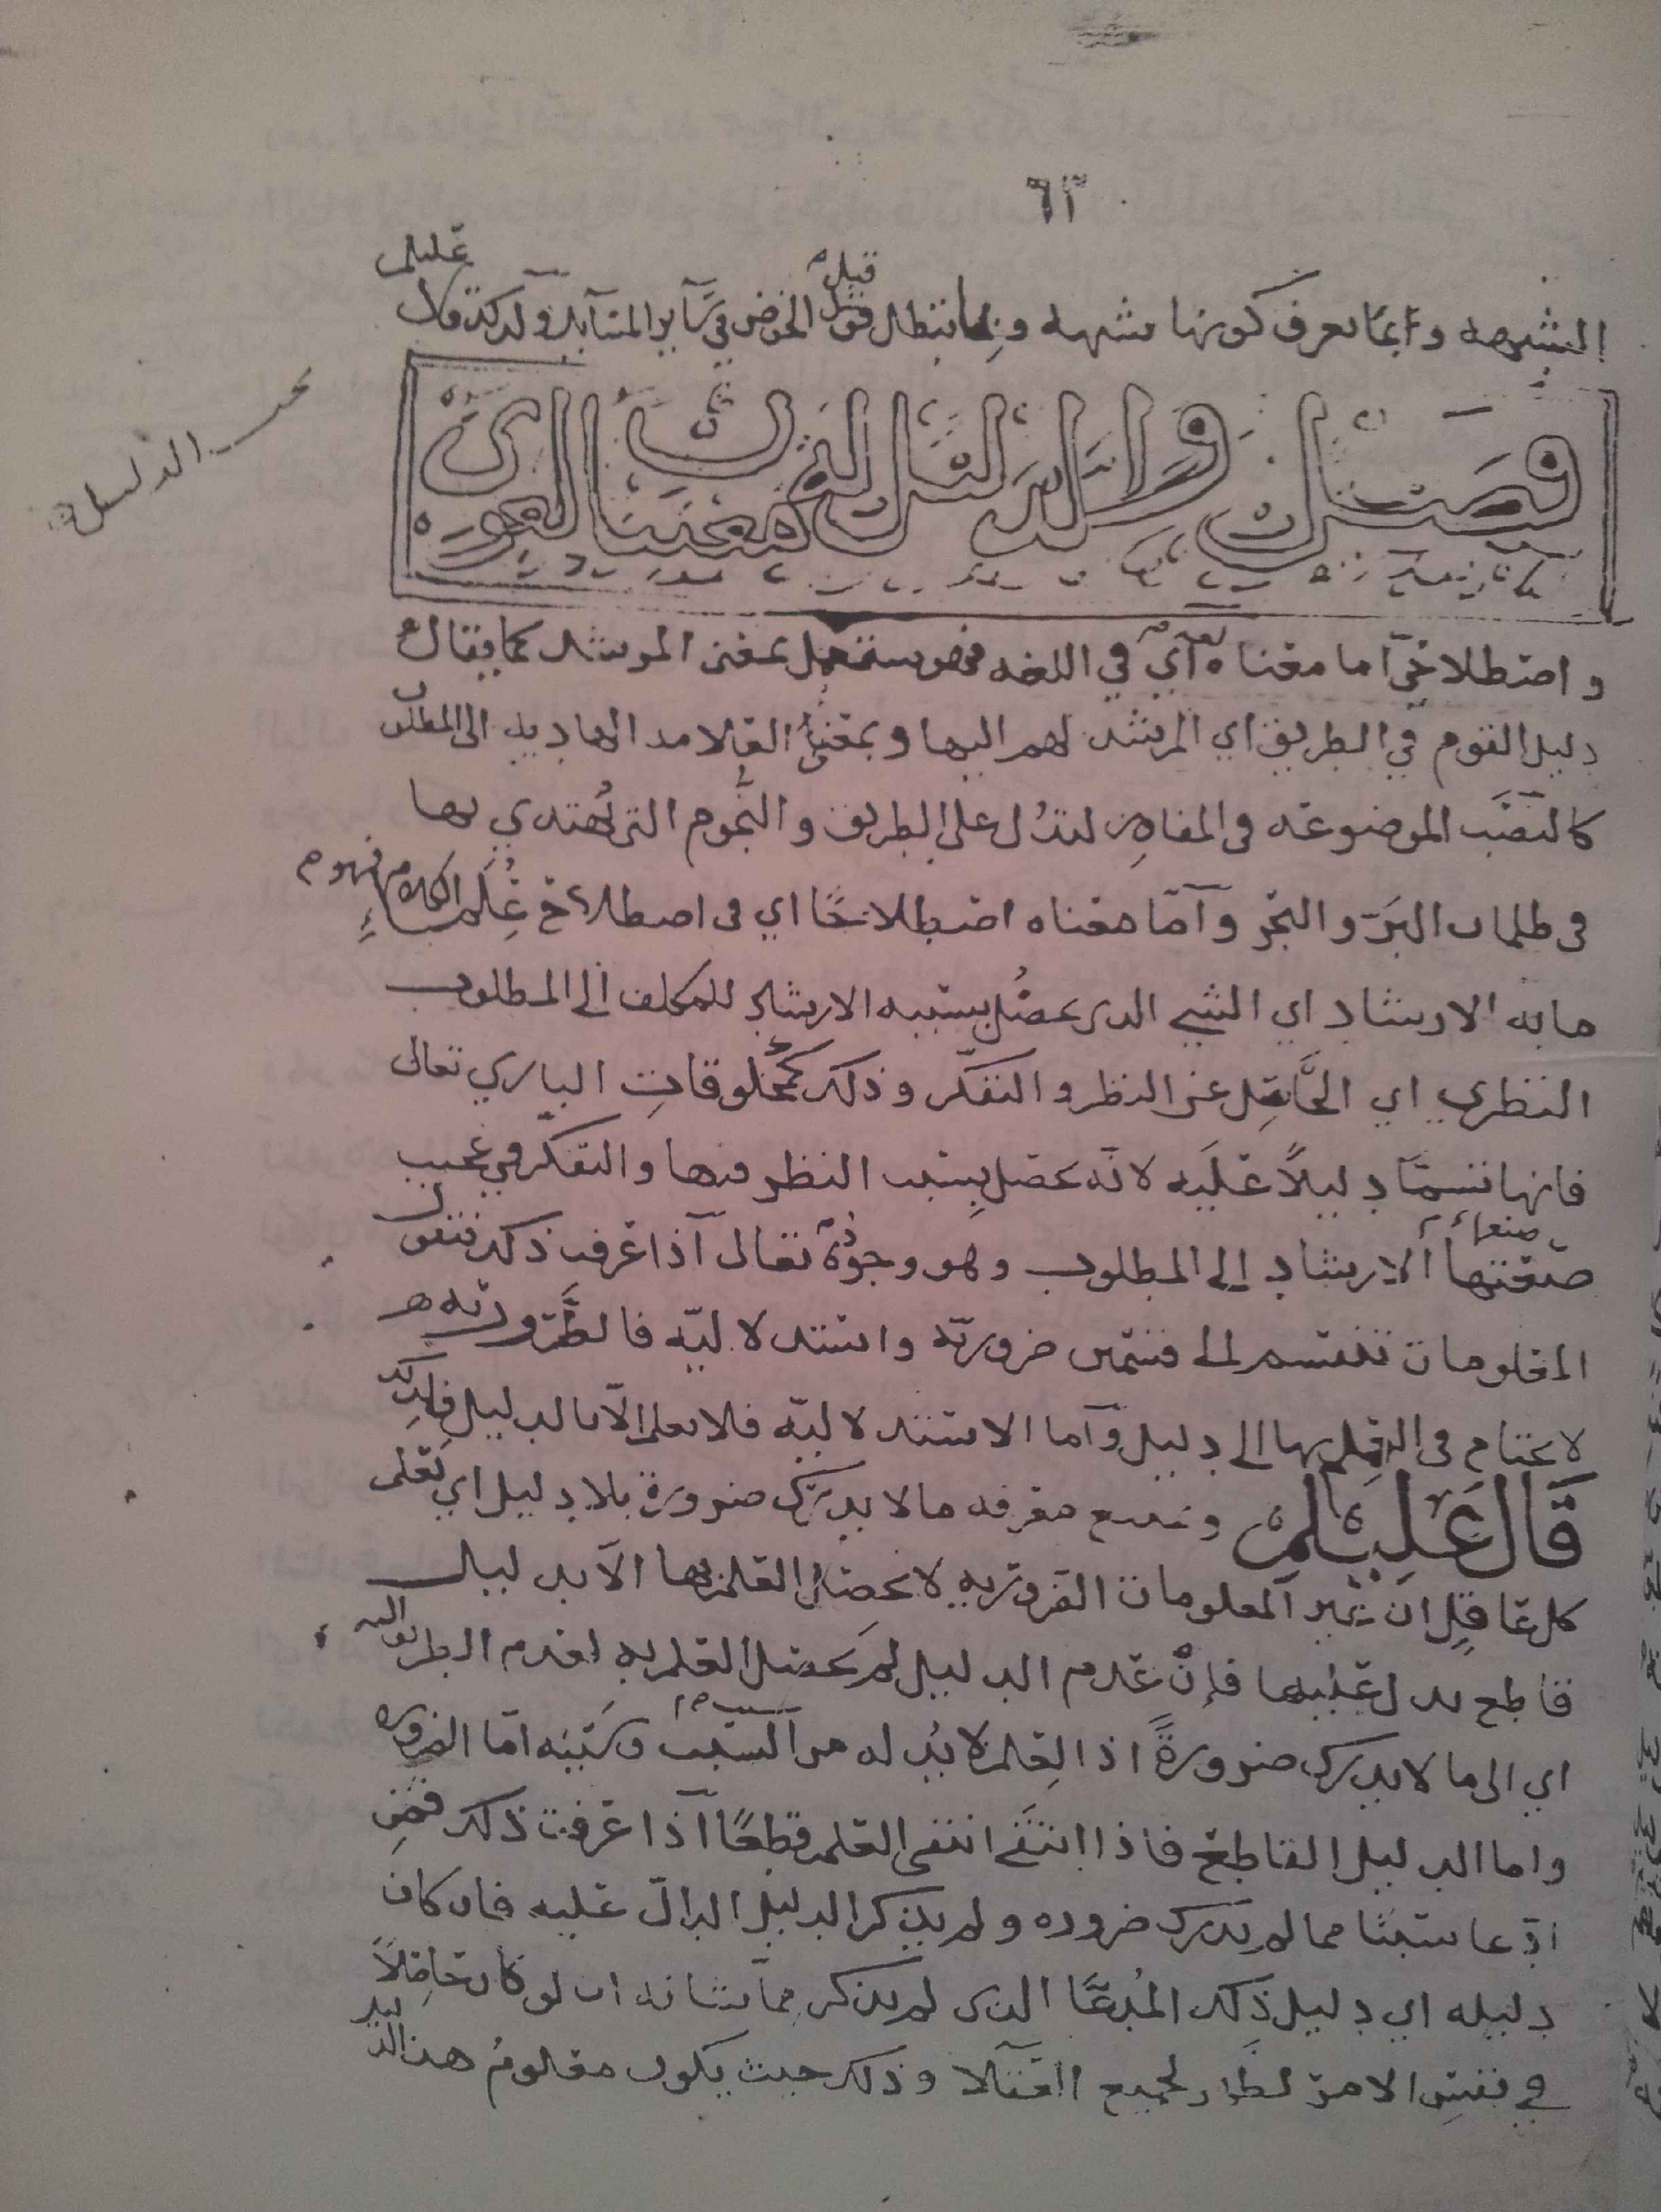 ٦٣
الشبهه وانما يعرف كونها شبهه وبما تبطل قبل الخوض في سآير المسآيل ولذلك قال عليلم
بحث الدليل
فصل والدليل له معنيان لغوي
واصطلاحي اما معناه اي في اللغه فهو مستعمل بمعنى المرشد كما يقال
دليل القوم في الطريق اي المرشد لهم اليها وبمعنى العلامه الهاديه الى المطلوب
كالنصب الموضوعه في المفاوز لتدل على الطريق والنجوم التي يُهتدي بها
في ظلمات البرّ والبحر وآمّا معناه اصطلاحًا اي في اصطلاح عُلمآء الكلام فهو م
ما به الارشاد اي الشي الذي يحصُل بسببه الارشاد للمكلف الى المطلوب
النظري اي الحَّاصِل عن النظر والتفكّر وذلك كمخلوقاتِ الباري تعالى
فانها تسمّا دليلاً عَليه لانّه يحصل بسبب النظر فيها والتفكّر في عجيب
صنعتها الارشاد إلى المطلوب وهو وجودُهُ تعالى آذا عرفت ذلك فنقول
المعلومات تنقسم الى قسمين ضروريّه واستدلاليّه فالضَّروريّه
لا يحتاج في العلم بها الى دليل وآما الاستدلاليّه فلا تعلم الّا بالدليل فلذلك
قال عليلم ويمتنع معرفه ما لا يدرك ضرورة بلا دليل اي يعلم
كل عاقلٍ ان غير المعلومات الضروريه لا يحصل العلم بها الّا بدليل
قاطع يدل عليها فإنْ عدم الدليل لم يحصل العلم به لعدم الطريق اليه
اي الى ما لا يدرك ضرورةً اذ العلم لا بُد له من آلسبب وسببه امّا الضروره
واما الدليل القاطع فاذا انتفى انتفى العلم قطعًا آذا عرفت ذلك فمن
ادّعا شيئًا مما لم يدرك ضروره ولم يذكر الدليل الدالّ عليه فان كان
دليله اي دليل ذلك المُدعَّا الذي لم يذكر مما شانه ان لو كان حاصِلاً
في نفس الامر لظهر لجميع العقلا وذلك حيث يكون معلومُ هذا الدليل